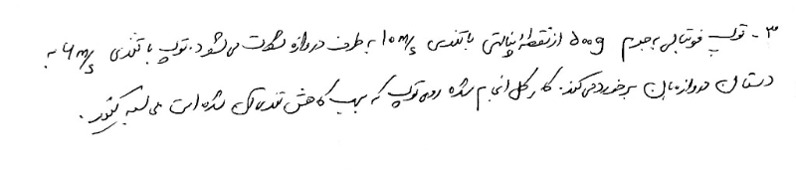 ۳- توپ فوتبالی به جرم 500g از نقطهٔ پنالتی با تندی 10 m/s به طرف دروازه شوت می‌شود. توپ با تندی 6 m/s به
دستان دروازه‌بان برخورد می‌کند. کار کل انجام شده روی توپ که سبب کاهش تندی آن شده است محاسبه کنید.